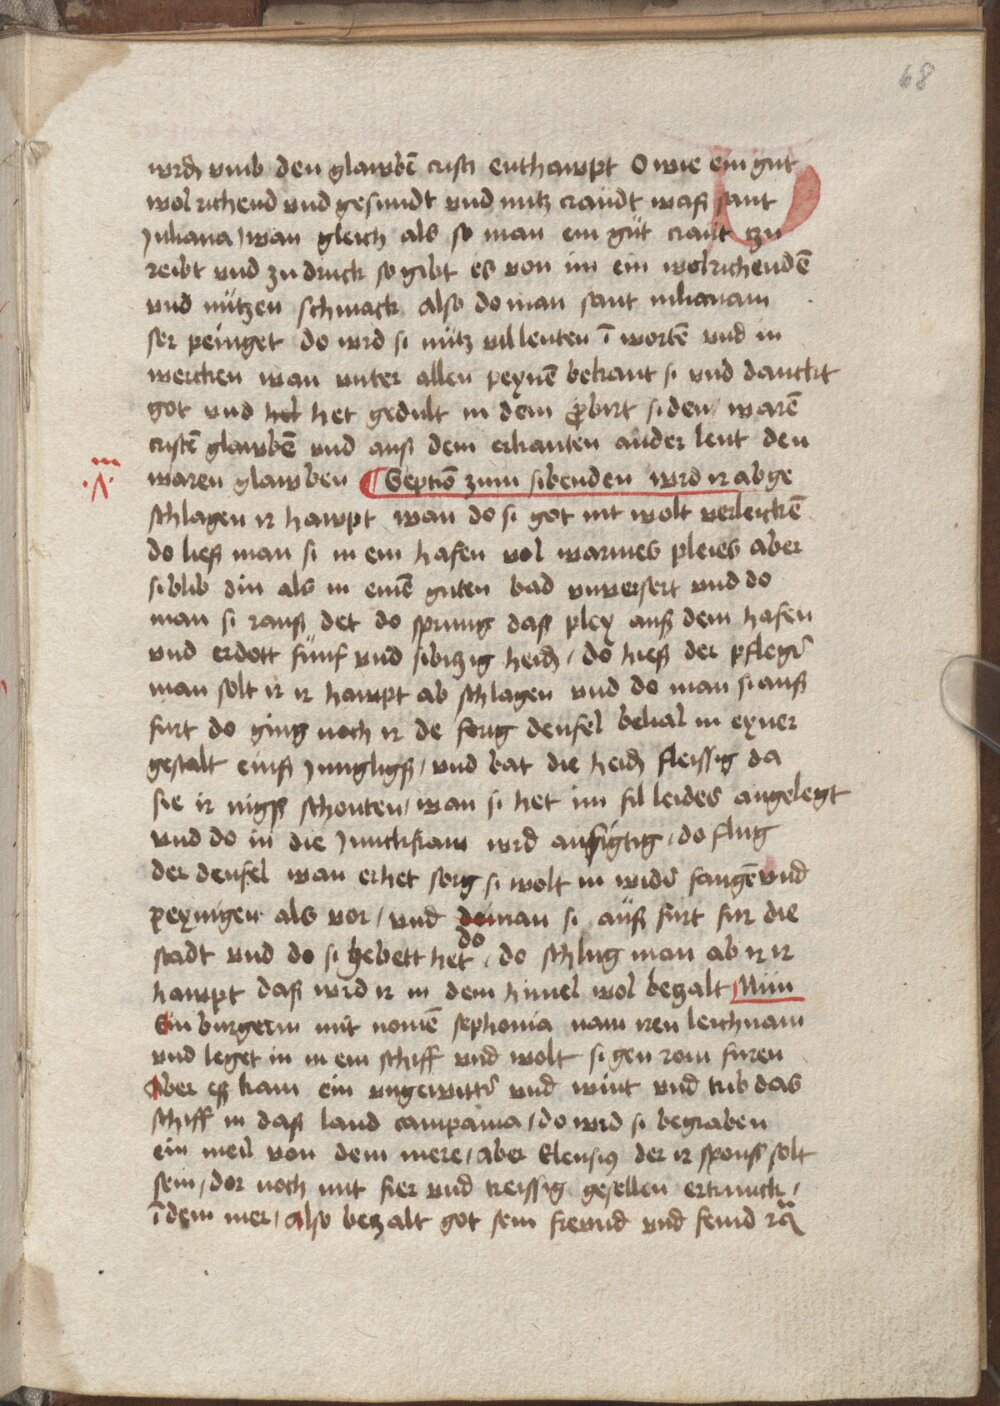 68
wrd vmb den glawbē cristi enthawpt O wie ein gut
wol richend vnd gesundt vnd nutz crawdt waß sant
Juliana / wan gleich als so man ein gut craut tzu
reibt vnd zu druck so gibt es von im ein wolrichendē
vnd nutzen schmack also do man sant iulianam
ser peinget do wrd si nutz vil leuten ī wortē vnd in
wercken wan vnter allen peynē bekant si vnd danckt
got vnd hel het gedult in dem probirt si den warē
cristē glawbē vnd auß dem erkanten ander leut den
waren glawben Septīo zum sibenden wrd ir abge
schlagen ir hawpt wan do si got nit wolt verleickē
do ließ man si in ein hafen vol warmes pleies aber
si blib din als in einē guten bad vnuersert vnd do
man si rauß det do sprung daß pley auß dem hafen
vnd erdott fünf vnd sibtzig heidē / do hieß der pfleger
man solt ir ir hawpt ab schlagen vnd do man si auß
furt do ging noch ir de forig deufel belial in eyner
gestalt einß Jungligß / vnd bat die heidē fleissig da
sie ir nigß schonten / wan si het im fil leides angelegt
vnd do in die Junckfraw wrd ansigtig / do flug
der deufel wan er het sorg si wolt in wider fangē vnd
peynigen als vor / vnd do man si auß furt fur die
stadt vnd do si gebett het do / do schlug man ab ir ir
hawpt daß wrd ir in dem himel wol betzalt Nun
Ein burgerin mit nomē sephonia nam iren leichnam
vnd leget in in ein schiff vnd wolt si gen rom furen
Aber eß kam ein vngewitter vnd wint vnd trib das
schiff in daß land campania / do wrd si begraben
ein meil von dem mere / aber Elensius der ir sponß solt
sein / dor noch mit fier vnd treissig gesellen ertrunck /
ī dem mer / also betzalt got sein freund vnd feind